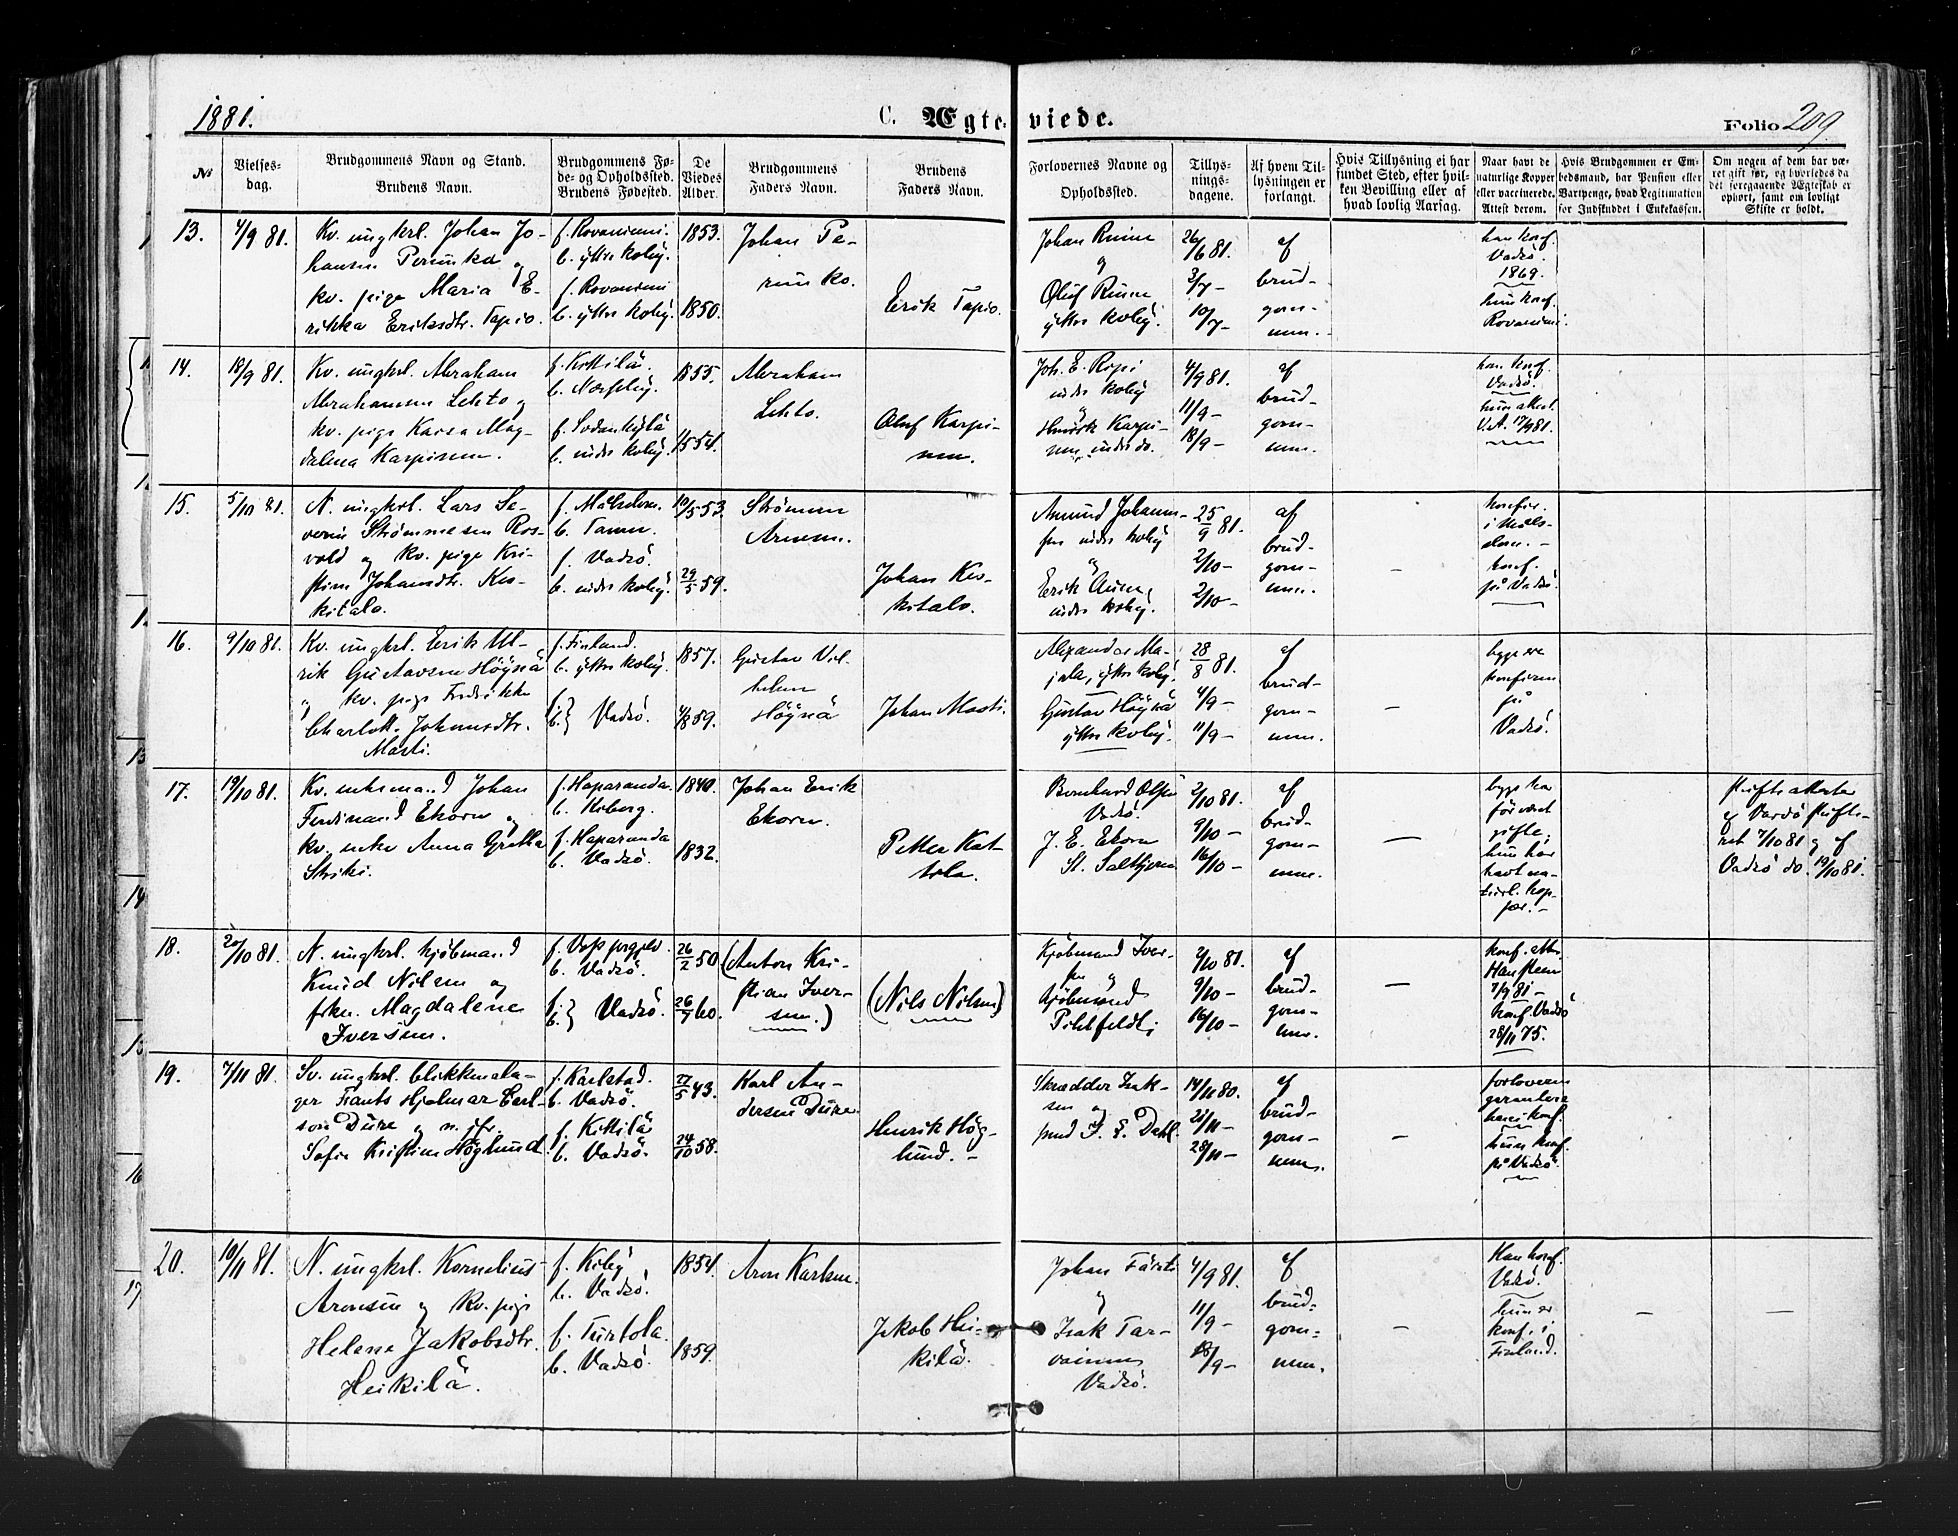 1881.
C. Ægte-viede.
Folio 209
№
Vielses-
dag.
Brudgommens Navn og Stand.
Brudens Navn.
Brudgommens Fø-
de- og Opholdssted.
Brudens Fødested.
De
Viedes
Alder.
Brudgommens
Faders Navn.
Brudens
Faders Navn.
Forlovernes Navne og
Opholdssted.
Tillys-
nings-
dagene.
Af hvem Til-
lysningen er
forlangt.
Hvis Tillysning ei har
fundet Sted, efter hvil-
ken Bevilling eller af
hvad lovlig Aarsag.
Naar havt de
naturlige Kopper
eller vaccinerede.
Attest derom.
Hvis Brudgommen er Em-
bedsmand, har Pension eller
Vartpenge, hvad Legitimation
for Indskuddet i Enkekassen.
Om nogen af dem har væ-
ret gift før, og hvorledes da
det foregaaende Ægteskab er
ophørt, samt om lovligt
Skifte er holdt.
13.
4/9 81.
Kv. ungkrl. Johan Jo-
hansen Perunka og
kv. pige Maria E-
rikka Eriksdtr. Tapio.
f. Rovaniemi.
b. yttre kvby.
f. Rovaniemi
b. yttre kvby.
1853.
1850.
Johan Pe-
runka.
Erik Tapio.
Johan Ruine
og
Oluf Ruine
yttre kvby.
26/6 81.
3/7 -
10/7 -
af
brud-
gom-
men.
han konf.
Vadsö.
1869.
hun konf.
Rovaniemi.
14.
18/9 81.
Kv. ungkrl. Abraham
Abrahamsen Lehto og
kv. pige Kaisa Mag-
dalena Karpinen.
f. Kittilä.
b. Næsseby.
f. Sodankylä
b. indre kvby.
1855.
1/5 54.
Abraham
Lehto.
Oluf Karpi-
nen.
Joh. E. Ropi
indre kvby
og
Henrik Karpi-
nen indre do.
4/9 81.
11/9 -
18/9 -
af
brud-
gom-
men.
han konf.
Vadsö.
hun attest
V.A. 17/9 81.
15.
5/10 81.
N. ungkrl. Lars Se-
verin Strømmesen Ros-
vold og kv. pige Kri-
stine Johansdtr. Kes-
kitalo.
f. Målselven.
b. Tanen.
f. Vadsö.
b. indre kvby.
10/5 53.
29/5 59.
Strømmen
Arnesen.
Johan Kes-
kitalo.
Amund Johann-
sen indre kvby
og
Erik Aune,
indre kvby.
25/9 81.
2/10 -
2/10 -
af
brud-
gom-
men.
-
konfir.
i Måls-
elven. -
konf.
på Vadsö.
16.
9/10 81.
Kv. ungkrl. Erik Ul-
rik Gustavsen Höynä
og kv. pige Fredrikke
Charlott. Johansdtr.
Masti.
f. Finland.
b. yttre kvby.
f.
b. } Vadsö.
1857.
4/8 59.
Gustav Vil-
helm
Höynä
Johan Masti.
Alexander Ma-
jala, yttre kvby.
Gustav Höynä
yttre kvby.
28/8 81.
4/9 -
11/9 -
af
brud-
gom-
men.
-
begge ere
konfirm
på
Vadsö.
17.
19/10 81.
Kv. enkemand Johan
Ferdinand Ekorn og
kv. enke Anna Gretha
Striki.
f. Haparanda.
b. Kiberg.
f. Haparanda
b. Vadsö.
1840.
1832.
Johan Erik
Ekorn.
Petter Kat-
tola.
Bernhard Olsen
Vadsö.
J. E. Ekorn
St. Saltkjeren
2/10 81.
9/10 -
16/10 -
af
brud-
gom-
men.
-
begge har
før været
gifte;
hun har
havt na-
turl. kop-
per. -
skifteattester
af Vardö skifte-
ret 7/10 81 og af
Vadsö do. 19/10 81.
18.
20/10 81.
N. ungkrl. kjöbmand
Knud Nilsen og
frkn. Magdalene
Iversen.
f. Voss prgjeld.
b. Vadsö.
f.
b. } Vadsö.
26/2 50
26/7 60.
(Anton Kri-
stian Iver-
sen.)
(Nils Nilsen)
Kjöbmand Iver-
sen og
Kjöbmand
Pihlfeldt;
2/10 81.
9/10 -
16/10 -
af
brud-
gom-
men.
-
konf. att.
Hansteen
7/9 81 -
konf. Vadsö
28/11 75.
19.
7/11 81.
Sv. ungkrl. blikkensla-
ger Frants Hjalmar Carl-
son Dure og n. jfr.
Sofie Kristine Höglund.
f. Karlstad.
b. Vadsö.
f. Kittilä
b. Vadsö.
27/5 43.
24/10 58.
Karl An-
dersen Dure.
Henrik Hög-
lund. -
Skrædder Isak-
sen og
smed J. E. Dahl.
14/11 80.
21/11 -
28/11 -
af
brud-
gom-
men.
-
forloverne
garantere
hans konf.
hun konf.
på Vadsö.
20.
10/11 81.
N. ungkrl. Kornelius
Aronsen og kv. pige
Helene Jakobsdtr.
Heikilä.
f. Kiby
b. Vadsö.
f. Turtola.
b. Vadsö.
1854.
1859.
Aron Karlsen.
Jakob Hei-
kilä.
Johan Färsti
og
Isak Tar-
vainen
Vadsö.
4/9 81.
11/9 -
18/9 -
af
brud-
gom-
men.
-
Han konf.
Vadsö.
hun er
konf. i
Finland.
-
-